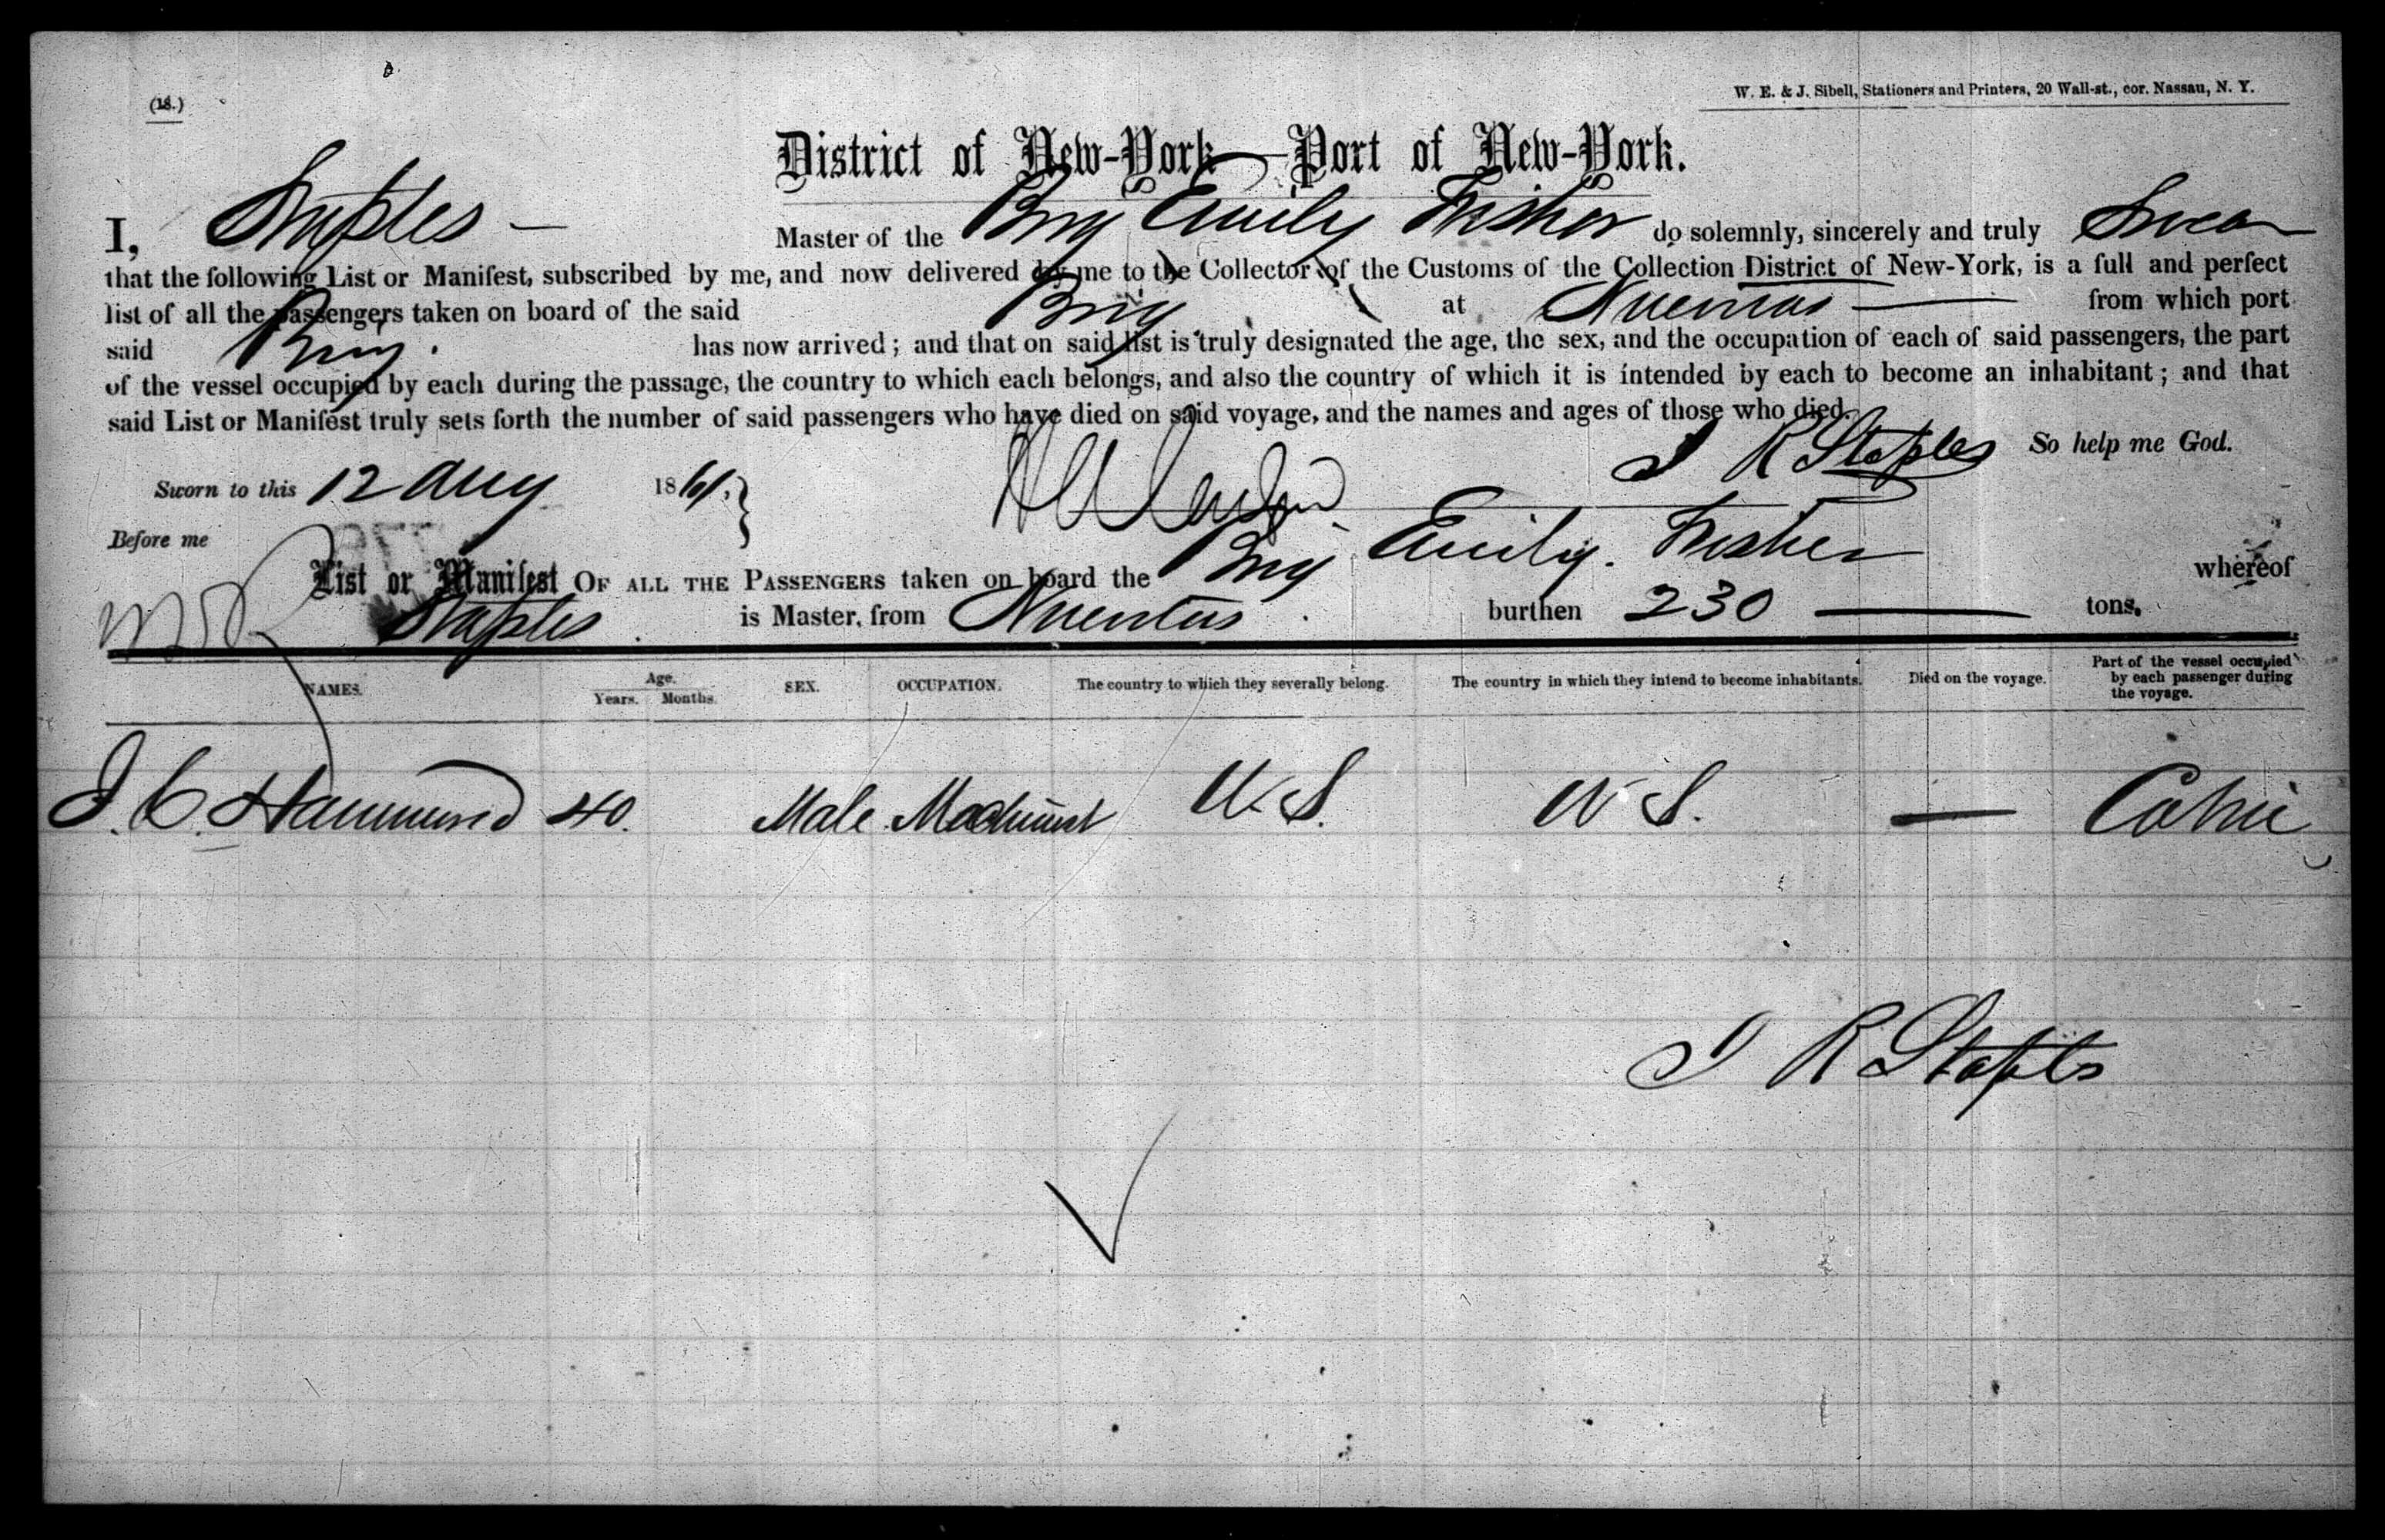 (18.)
W. E. & J. Sibell, Stationers and Printers, 20 Wall-st., cor. Nassau, N. Y.
District of New-York—Port of New-York.
I, Staples — Master of the Brig Emily Fisher do solemnly, sincerely and truly Swear
that the following List or Manifest, subscribed by me, and now delivered by me to the Collector of the Customs of the Collection District of New-York, is a full and perfect
list of all the passengers taken on board of the said Brig at Nuevitas — from which port
said Brig. has now arrived; and that on said list is truly designated the age, the sex, and the occupation of each of said passengers, the part
of the vessel occupied by each during the passage, the country to which each belongs, and also the country of which it is intended by each to become an inhabitant; and that
said List or Manifest truly sets forth the number of said passengers who have died on said voyage, and the names and ages of those who died.
J R Staples So help me God.
Sworn to this 12 Aug 1861.
Before me
List or Manifest OF ALL THE PASSENGERS taken on board the Brig Emily Fisher whereof
Staples is Master, from Nuevitas. burthen 230 — tons.
NAMES. Age. Years. Months. SEX. OCCUPATION. The country to which they severally belong. The country in which they intend to become inhabitants. Died on the voyage. Part of the vessel occupied by each passenger during the voyage.
J. C. Hammond 40. Male Machinist U.S. U S. — Cabin
J R Staples